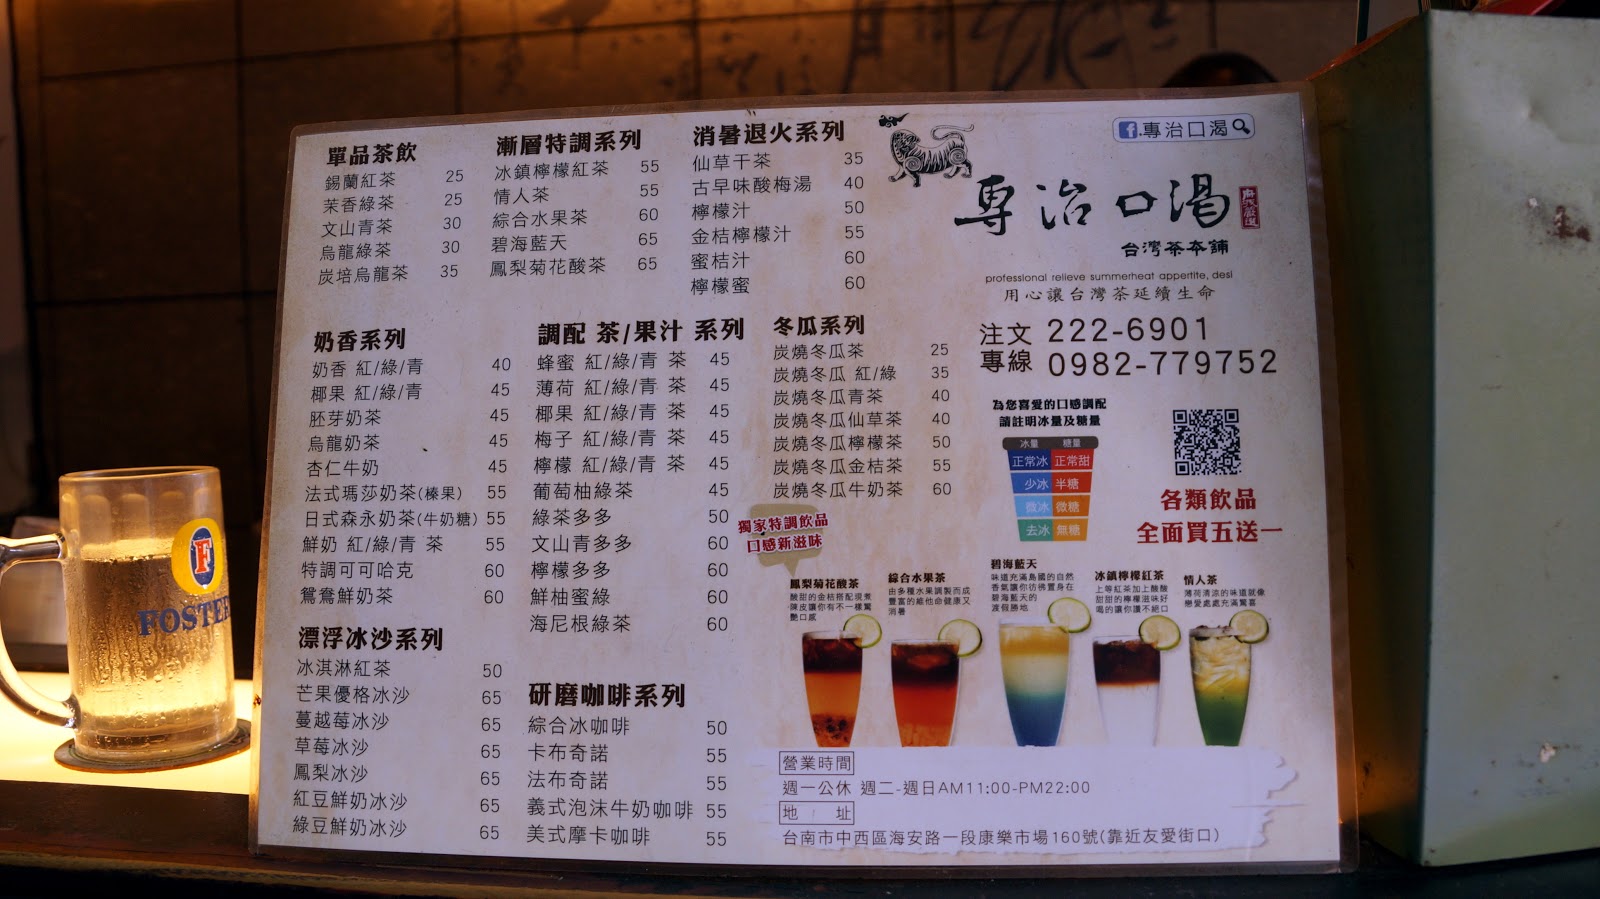 單品茶飲
錫蘭紅茶 25
茉香綠茶 25
文山青茶 30
烏龍綠茶 30
炭培烏龍茶 35
漸層特調系列
冰鎮檸檬紅茶 55
情人茶 55
綜合水果茶 60
碧海藍天 65
鳳梨菊花酸茶 65
消暑退火系列
仙草干茶 35
古早味酸梅湯 40
檸檬汁 50
金桔檸檬汁 55
蜜桔汁 60
檸檬蜜 60
f.專治口渴
專治口渴
台灣茶本舖
professional relieve summerheat appertite, desl
用心讓台灣茶延續生命
注文 222-6901
專線 0982-779752
奶香系列
奶香 紅/綠/青 40
椰果 紅/綠/青 45
胚芽奶茶 45
烏龍奶茶 45
杏仁牛奶 45
法式瑪莎奶茶(榛果) 55
日式森永奶茶(牛奶糖) 55
鮮奶 紅/綠/青 茶 55
特調可可哈克 60
鴛鴦鮮奶茶 60
調配 茶/果汁 系列
蜂蜜 紅/綠/青 茶 45
薄荷 紅/綠/青 茶 45
椰果 紅/綠/青 茶 45
梅子 紅/綠/青 茶 45
檸檬 紅/綠/青 茶 45
葡萄柚綠茶 45
綠茶多多 50
文山青多多 60
檸檬多多 60
鮮柚蜜綠 60
海尼根綠茶 60
冬瓜系列
炭燒冬瓜茶 25
炭燒冬瓜 紅/綠 35
炭燒冬瓜青茶 40
炭燒冬瓜仙草茶 40
炭燒冬瓜檸檬茶 50
炭燒冬瓜金桔茶 55
炭燒冬瓜牛奶茶 60
為您喜愛的口感調配
請註明冰量及糖量
冰量 糖量
正常冰 正常甜
少冰 半糖
微冰 微糖
去冰 無糖
各類飲品
全面買五送一
獨家特調飲品
口感新滋味
漂浮冰沙系列
冰淇淋紅茶 50
芒果優格冰沙 65
蔓越莓冰沙 65
草莓冰沙 65
鳳梨冰沙 65
紅豆鮮奶冰沙 65
綠豆鮮奶冰沙 65
研磨咖啡系列
綜合冰咖啡 50
卡布奇諾 55
法布奇諾 55
義式泡沫牛奶咖啡 55
美式摩卡咖啡 55
鳳梨菊花酸茶
酸甜的金桔搭配現煮
陳皮讓你有不一樣驚
艷口感
綜合水果茶
由多種水果調製而成
豐富的維他命健康又
消暑
碧海藍天
味道充滿島國的自然
香氣讓你彷彿置身在
碧海藍天的
渡假勝地
冰鎮檸檬紅茶
上等紅茶加上酸酸
甜甜的檸檬滋味好
喝的讓你讚不絕口
情人茶
薄荷清涼的味道就像
戀愛處處充滿驚喜
營業時間
週一公休 週二-週日AM11:00-PM22:00
地 址
台南市中西區海安路一段康樂市場160號(靠近友愛街口)
F
FOSTER